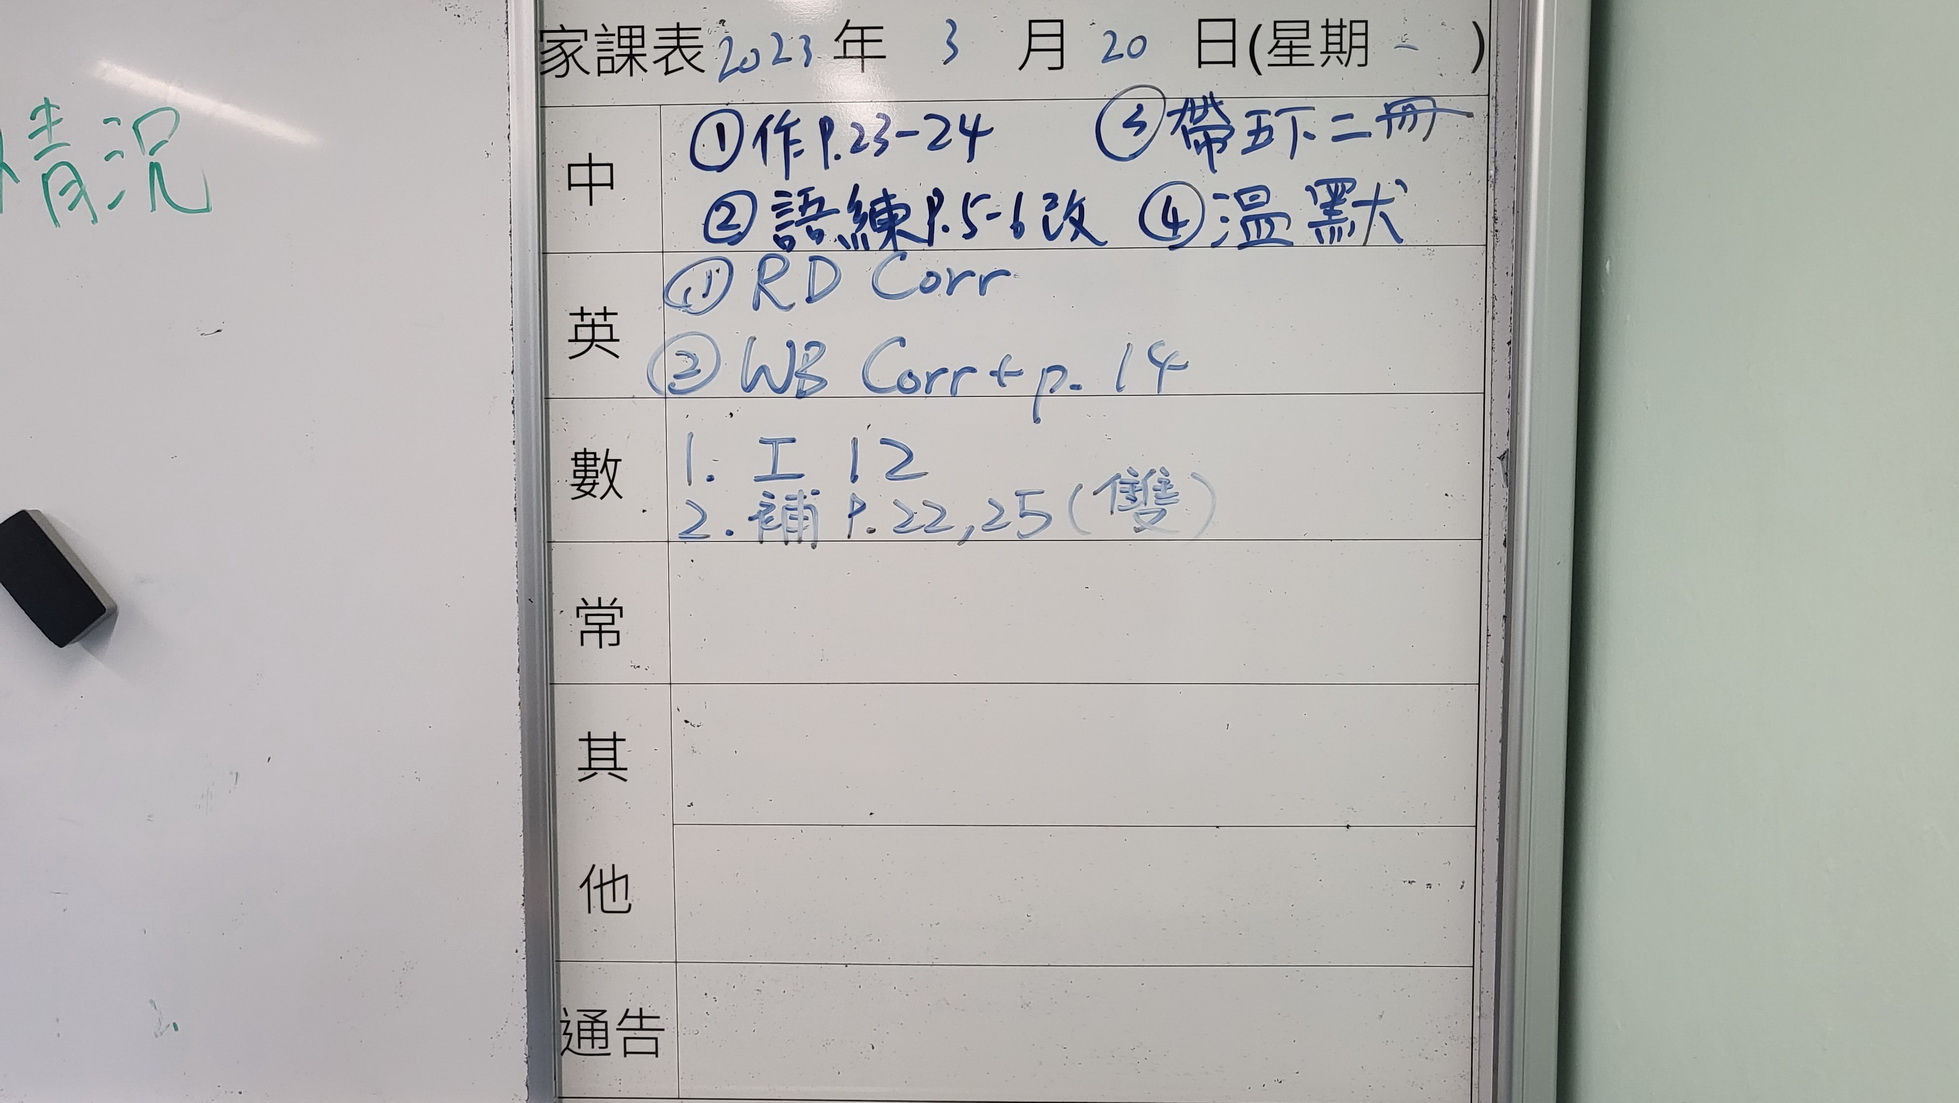 情況
家課表2023年 3 月 20 日(星期 一 )
中
①作P.23-24 ③帶五下二冊
②語練P.5-6改 ④溫默
英
① RD Corr
② WB Corr + p. 14
數
1. 工 12
2. 補 P.22,25(雙)
常
其
他
通告